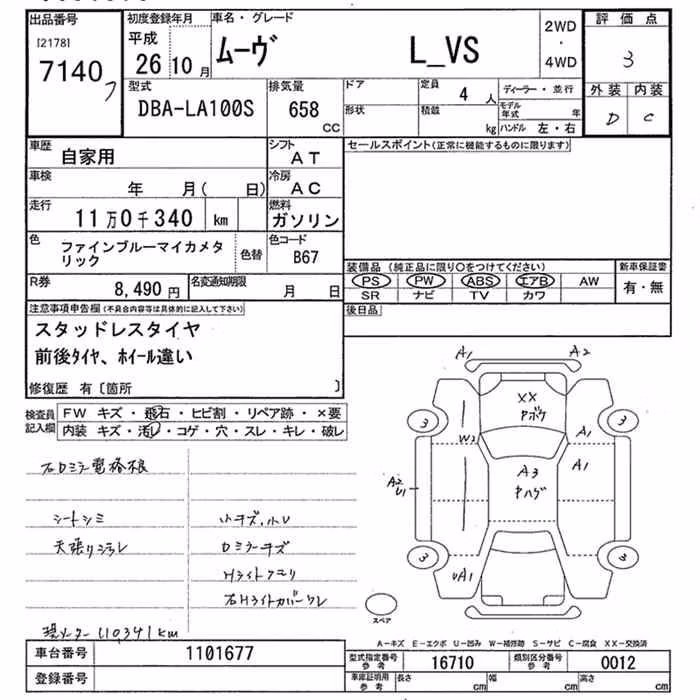 出品番号
[2178]
7140
フ
初度登録年月
平成
26 10 月
車名・グレード
ムーヴ L_VS
2WD
・
4WD
評価点
3
外装 内装
D C
型式
DBA-LA100S
排気量
658
CC
ドア
形状
定員
4 人
積載
kg
ディーラー・並行
モデル年式 年
ハンドル 左・右
車歴
自家用
シフト
AT
セールスポイント(正常に機能するものに限ります)
車検
年 月( 日)
冷房
AC
走行
11万0千340 km
燃料
ガソリン
色
ファインブルーマイカメタ
リック
色替
色コード
B67
装備品 (純正品に限り○をつけてください)
PS PW ABS エアB AW
SR ナビ TV カワ
新車保証書
有・無
R券
8,490 円
名変通知期限
月 日
後日品
注意事項申告欄(不具合内容等は具体的に記入して下さい)
スタッドレスタイヤ
前後タイヤ、ホイール違い
修復歴 有〔箇所 〕
検査員
記入欄
FW キズ・飛石・ヒビ割・リペア跡・×要
内装 キズ・汚レ・コゲ・穴・スレ・キレ・破レ
右ロミラー電格不良
シートシミ
小キズ、小U
天張リシミ
ロミラーキズ
Hライトクモリ
右Hライトカバーワレ
現メーター 110341km
A1
A2
XX
Pボケ
3
3
W2
A1
A1
A2
U1
A3
Pハゲ
3
3
UA1
スペア
A-キズ E-エクボ U-凹み W-補修跡 S-サビ C-腐食 XX-交換済
車台番号
1101677
登録番号
型式指定番号
参考
16710
類別区分番号
参考
0012
車庫証明用
参考
長さ cm
幅 cm
高さ cm